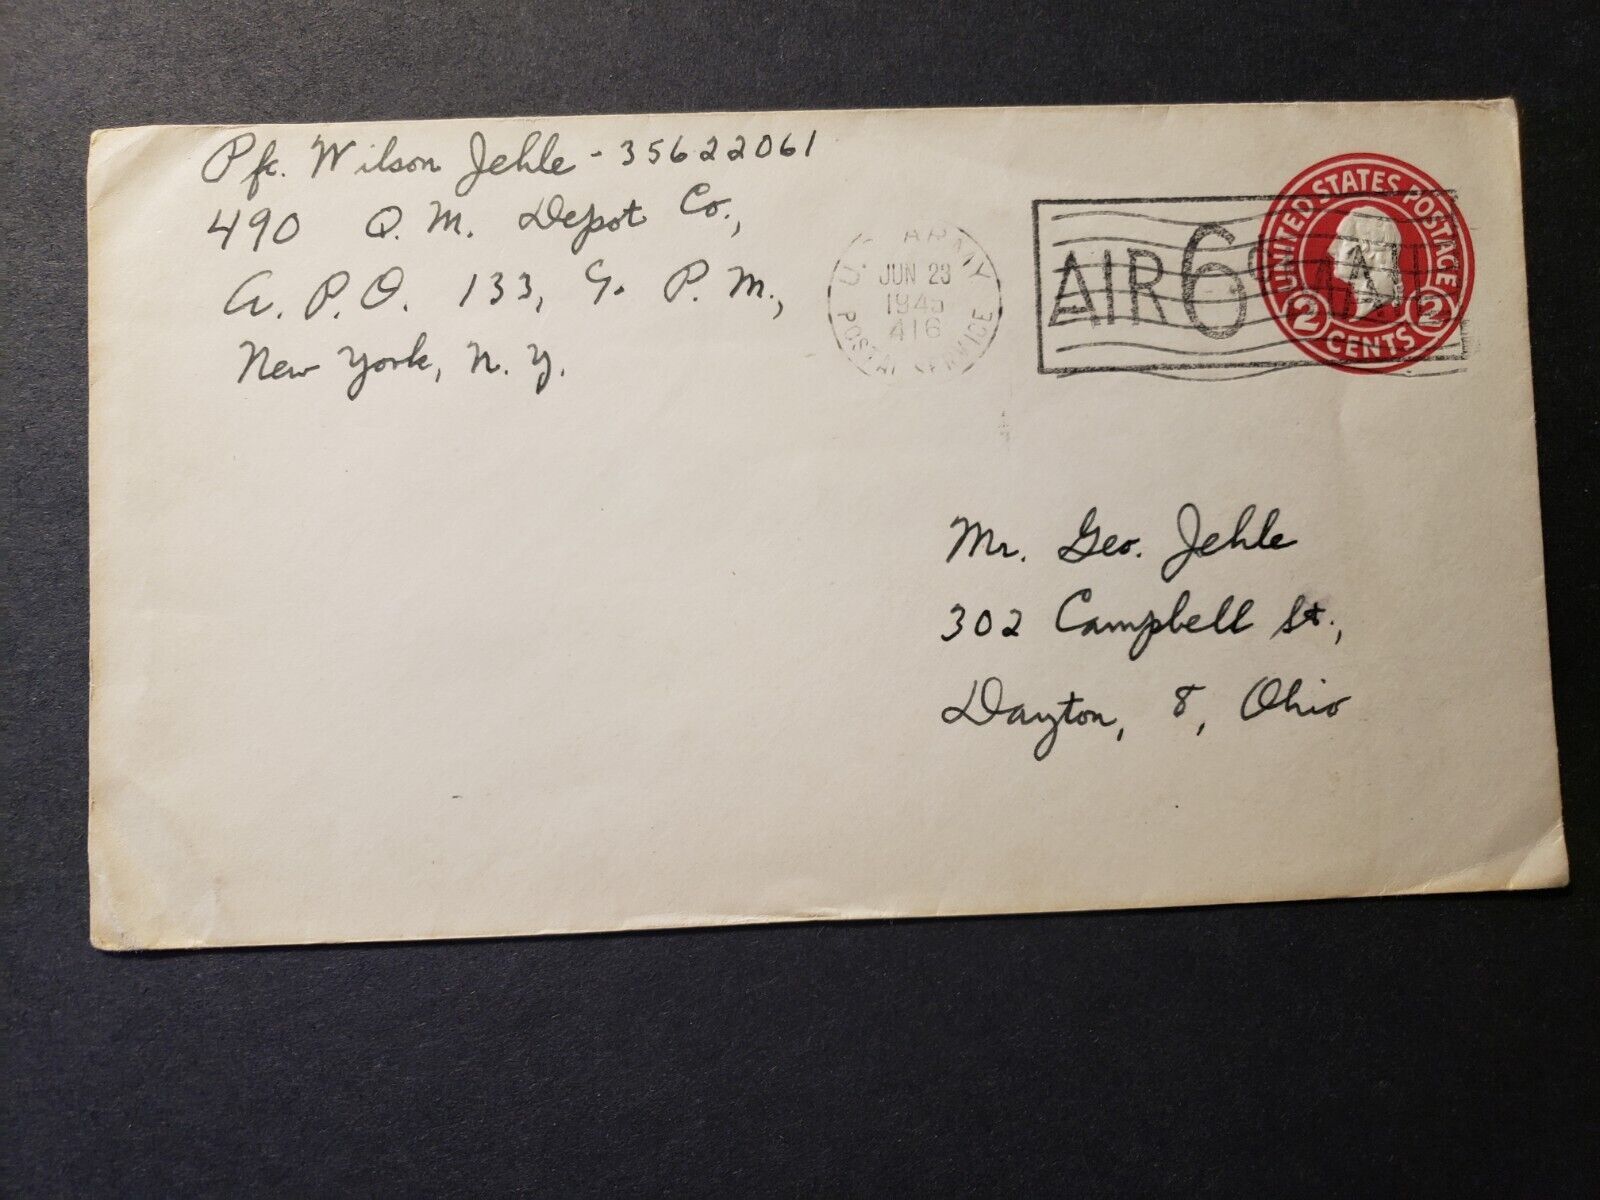 Pfc. Wilson Jehle - 35622061
490 Q.M. Depot Co.,
A.P.O. 133, % P.M.,
New York, N.Y.
U.S. ARMY
JUN 23
1945
416
POSTAL SERVICE
AIR 6¢ MAIL
UNITED STATES POSTAGE
2 CENTS 2
Mr. Geo. Jehle
302 Campbell St.,
Dayton, 8, Ohio